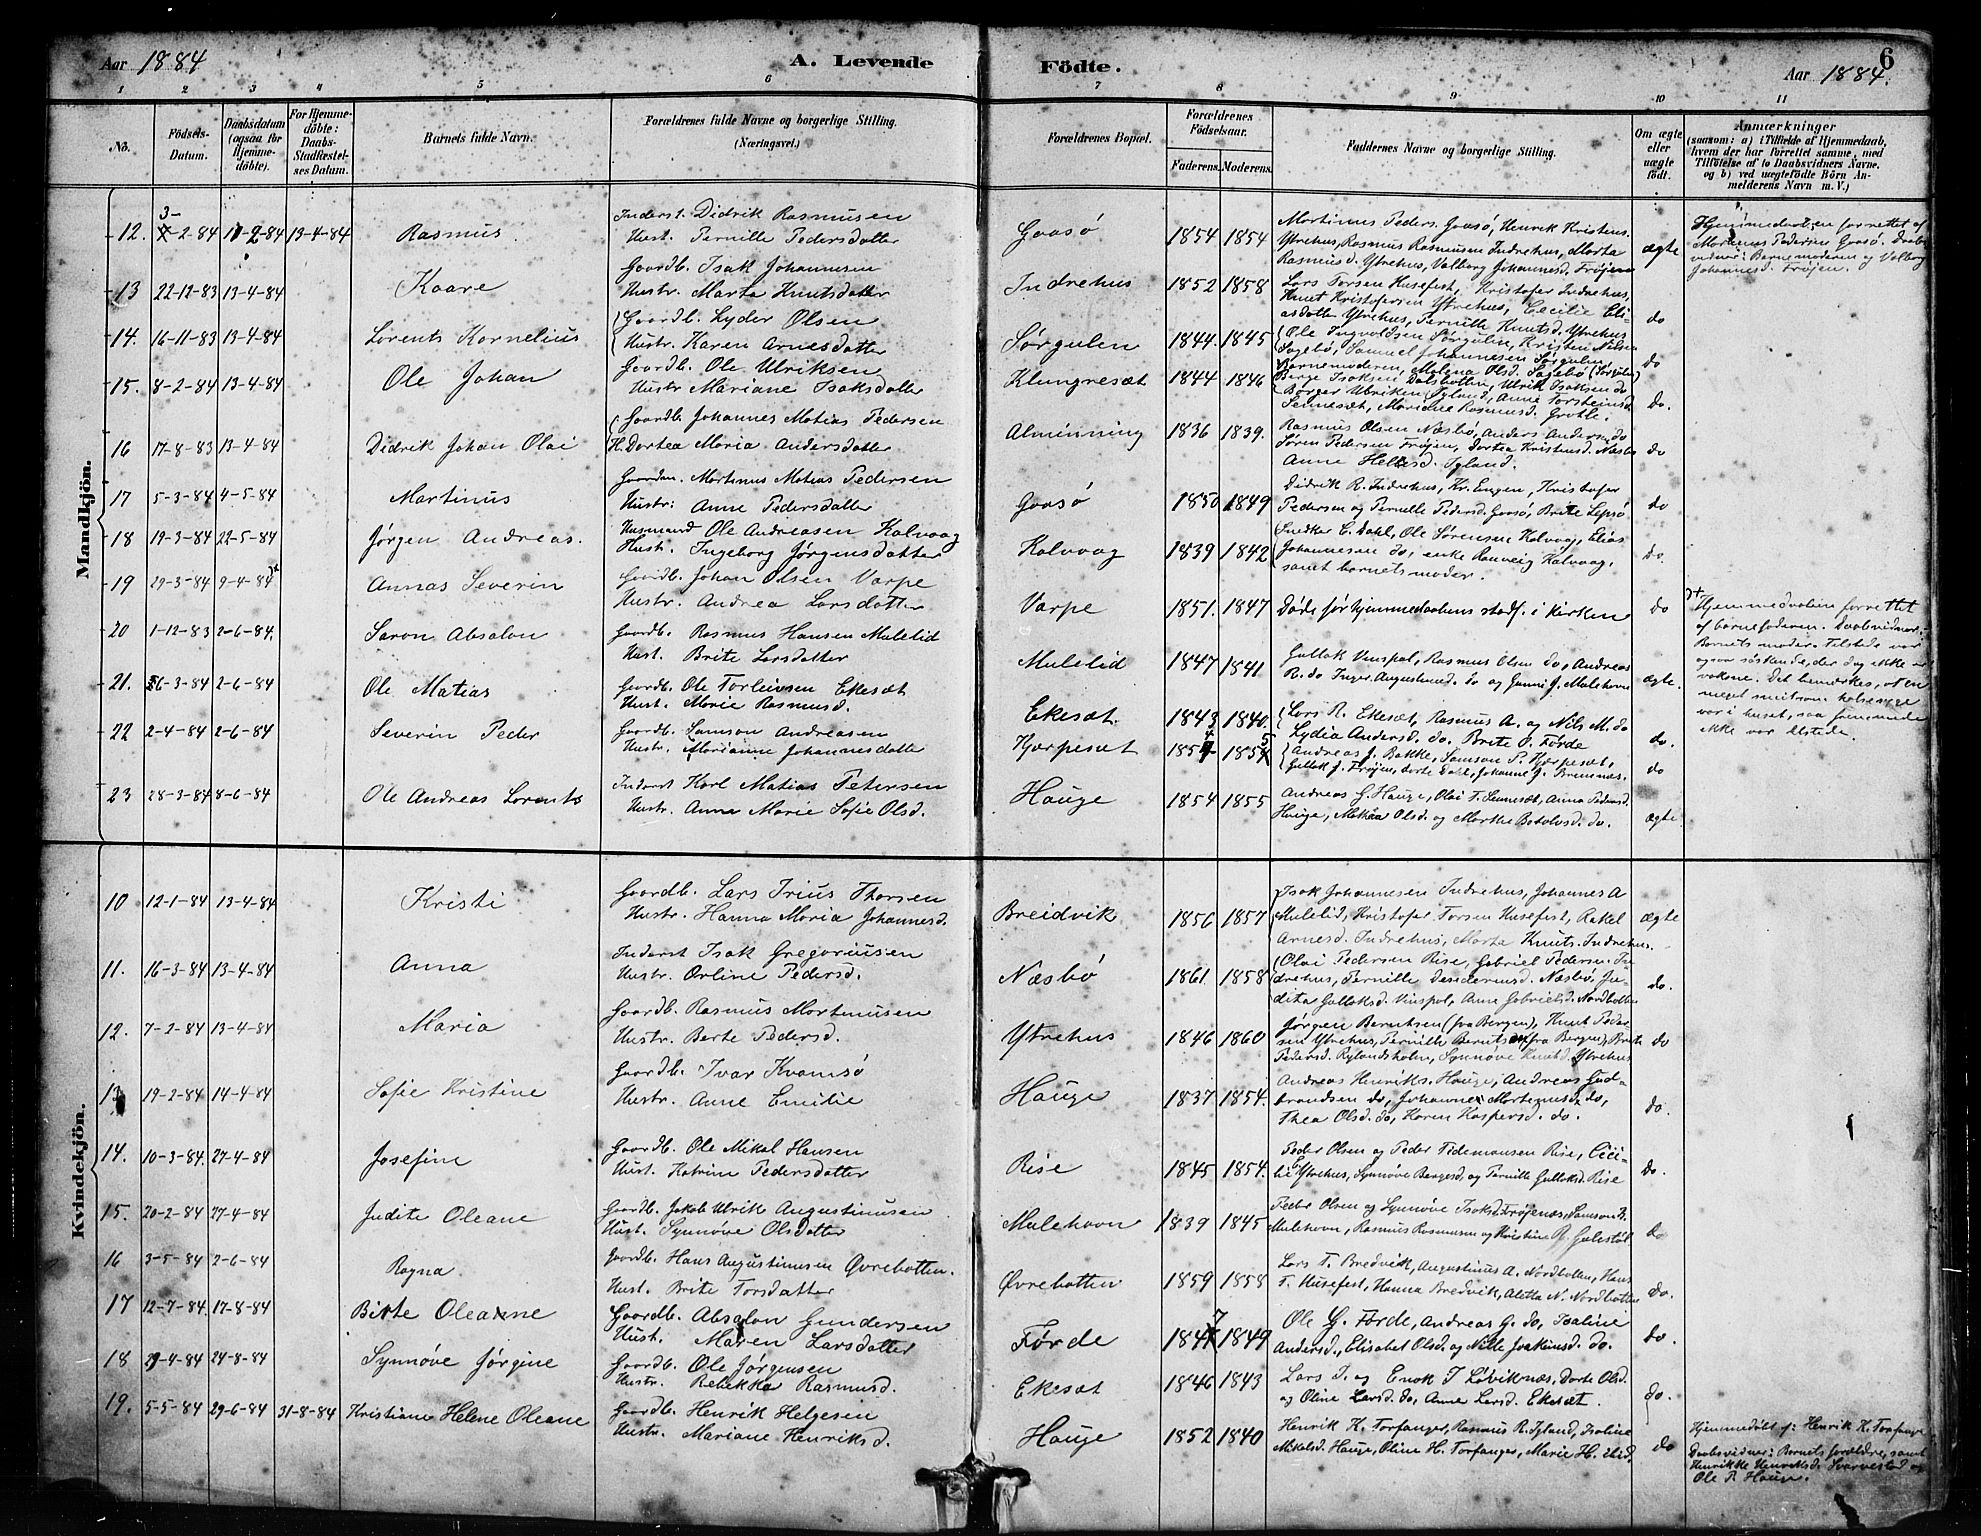 Aar 1884
A. Levende
Födte.
6
Aar 1884.
1 2 3 4 5 6 7 8 9 10 11
No.
Födsels-Datum.
Daabsdatum (ogsaa for Hjemme-döbte).
For Hjemme-döbte: Daabs-Stadfæstel-ses Datum.
Barnets fulde Navn.
Forældrenes fulde Navne og borgerlige Stilling.
(Næringsvei.)
Forældrenes Bopæl.
Forældrenes Födselsaar.
Faderens. Moderens.
Faddernes Navne og borgerlige Stilling.
Om ægte eller uægte födt.
Anmærkninger
(saasom: a) i Tilfælde af Hjemmedaab, hvem der har forrettet samme, med Tilföielse af to Daabsvidners Navne, og b) ved uægtefödte Börn An-melderens Navn m. V.)
Mandkjön.
12. 3-2-84 11-2-84 13-4-84 Rasmus. Inderst. Didrik Rasmusen
Hust. Pernille Pedersdatter
Gaasø 1854 1854 Martinus Peders. Gaasø, Henrik Kristens.
Ytrehus, Rasmus Rasmusen Indrehus, Marta
Rasmusd. Ytrehus, Valborg Johannesd. Frøjen
ægte
Hjemmedaaben forrettet af
Martinus Pedersen Gaasø. Daabs
vidner: Barnemoderen og Valborg
Johannesd. Frøjen.
13 22-12-83 13-4-84 Kaare Gaardb. Isak Johannesen
Hustr. Marta Knutsdatter
Indrehus 1852 1858 Lars Torsen Husefest, Kristofer Indrehus,
Knut Kristofersen Ytrehus, Cecilie Eli-
asdotter Ytrehus, Pernille Knutsd. Ytrehus
do
14. 16-11-83 13-4-84 Lorents Kornelius Gaardb. Lyder Olsen
Hustr. Karen Arnesdatter
Sørgulen 1844. 1845 Ole Ingvoldsen Sørgulen, Kristen Nilsen
Sagebø, Samuel Johannesen Sørgulen,
Barnemoderen, Malena Olsd. Sagebø (Sørgulen)
do
15. 8-2-84 13-4-84 Ole Johan Gaardb. Ole Ulriksen
Hustr Mariane Isaksdatter
Klungresæt 1844 1846 Berge Isaksen Dalsbotten, Ulrik Isaksen do
Børger Ulriken Igland, Anne Torsteinsd.
Sennesæt, Mariane Rasmusd. Grotle.
do.
16 17-8-83 13-4-84 Didrik Johan Olai Gaardb. Johannes Matias Pedersen
H. Dortea Maria Andersdatter
Alminning 1836 1839. Rasmus Olsen Næsbø, Anders Andersen do
Søren Pedersen Frøjen, Dortea Kristensd. Næsbø
Anne Helgesd. Igland.
do
17 5-3-84 4-5-84 Martinus Gaardm. Martinus Matias Pedersen
Hustr: Anne Pedersdatter
Gaasø 1850 1849 Didrik R. Indrehus, Kr. Engen, Kristofer
Pedersen og Pernille Pedersd. Gaasø, Brite Lepsø
do
18 19-3-84 22-5-84 Jørgen Andreas. Husmand Ole Andreasen Kalvaag
Hust. Ingeborg Jørgensdatter
Kalvaag 1839 1842 Snedker C. Dahl, Ole Sørensen Kalvaag, Elias
Johannesen do, enke Ranveig Kalvaag,
samt barnets moder.
do.
19 29-3-84 9-4-84 Annas Severin Gaardb. Johan Olsen Varpe
Hustr. Andrea Larsdatter
Varpe 1851. 1847 Døde før hjemmedaabens stadf. i kirken
do
Hjemmedaaben forrettet
af barnefaderen. Daabsvidner:
Barnets moder. Tilstede var
ogsaa søskende, der dog ikke er
voksne. Det bemerkes, at en
meget smitsom halssyge
var i huset, saa fremmede
ikke var tilstede.
20 1-12-83 2-6-84. Saron Absalon Gaardb. Rasmus Hansen Mulelid
Hust. Brite Larsdatter
Mulelid 1847 1841 Gullak Vinspol, Rasmus Olsen do, Andreas
R. do Inger Augustinusd. do og Gunni J. Mulehavn
ægte.
21. 26-3-84 2-6-84 Ole Matias Gaardb. Ole Torleivsen Ekesæt
Hust. Marie Rasmusd.
Ekesæt. 1843 1840. Lars R. Ekesæt, Rasmus A. og Nils M. do
Lydia Andersd. do. Brite O. Førde
do.
22 2-4-84 2-6-84 Severin Peder Gaardb. Samson Andreasen
Hustr. Marianne Johannesdatter
Hjerpesæt 1854 1855 Andreas J. Bakke, Samson P. Hjerpesæt,
Gullak J. Frøjen, Dorte Dale, Johanne J. Bremnæs.
do
23 28-3-84 8-6-84 Ole Andreas Lorents Inderst Karl Matias Petersen
Hustr. Anne Marie Sofie Olsd.
Hauge 1854 1855 Andreas G. Hauge, Olai T. Sennesæt, Anna Pedersd.
Hauge, Mekka Olsd. og Marthe Botolvsd. do.
ægte.
Kvindekjön.
10 12-1-84 13-4-84 Kristi Gaardb. Lars Irius Thorsen
Hustr. Hanna Maria Johannesd.
Breidvik 1856 1857 Isak Johannesen Indrehus, Johannes A
Mulelid, Kristofer Torsen Husefest, Rakel
Arnesd. Indrehus, Marta Knuts. Indrehus.
ægte
11. 16-3-84 13-4-84 Anna Inderst Isak Gregoriusen
Hustr. Orline Pedersd.
Næsbø 1861. 1858 Olai Pedersen Rise, Gabriel Pedersen In-
drehus, Pernille Desideriusd. Næsbø, Ju-
dita Gullaksd. Vinspol, Anne Gabrielsd. Nordbotten
do.
12. 7-2-84 13-4-84 Maria Gaardb. Rasmus Martinusen
Hustr. Berte Pedersd.
Ytrehus 1846 1860 Jørgen Berntsen (fra Bergen), Knut Peder-
sen Ytrehus, Pernille Berntsen (fra Bergen), Brite
Pedersd. Rylandsholm, Synnøve Knutsd. Ytrehus
do
13 19-2-84 14-4-84 Sofie Kristine Gaardb. Ivar Kvamsø
Hustr. Anne Emilie
Hauge 1837 1854. Andreas Henriks. Hauge, Andreas Gud-
brandsen do, Johanne Martinusd. do,
Thea Olsd. do, Karen Kaspersd. do.
do.
14. 10-3-84. 27-4-84 Josefine Gaardb. Ole Mikal Hansen
Hust. Katrine Pedersdatter
Rise 1845 1854. Peder Olsen og Peder Tidemansen Rise, Ceci-
lie Ytrehus, Synnøve Bergesd. og Pernille Gullaksd. Rise
do.
15. 20-2-84 27-4-84 Judite Oleane Gaardb. Jakob Ulrik Augustinusen
Hust. Synnøve Olsdatter
Mulehavn 1839 1845 Peder Olsen og Synnøve Isaksd. Frøjenæs, Samson R.
Mulehavn, Rasmus Rasmusen og Kristine R. Gulestøl
do
16 3-5-84 2-6-84 Ragna. Gaardb. Hans Augustinusen Øvrebotten.
Hust. Brite Torsdatter
Øvrebotten 1859 1858 Lars T. Bredvik, Augustinus A. Nordbotten, Hans
T. Husefest, Hanna Bredvik, Aletta N. Nordbotten
do.
17 12-7-84. 17-8-84 Birte Oleanne Gaardb. Absalon Gundersen
Hust. Maren Larsdatter
Førde 1847 1849 Ole G. Førde, Andreas G. do, Isaline
Andersd., Elisabet Olsd. og Nille Joakimsd. do.
do.
18 29-4-84 24-8-84 Synnøve Jørgine Gaardb. Ole Jørgensen
Hustr. Rebekka Rasmusd.
Ekesæt 1846 1843 Lars I. og Enok I Løviknæs, Dorte Olsd.
og Oline Larsd. do, Anne Larsd. Ekesæt.
do.
19. 5-5-84 29-6-84 31-8-84 Kristiane Helene Oleane Gaardb. Henrik Helgesen
Hustr. Mariane Henriksd.
Hauge 1852 1840 Henrik K. Torfanger, Rasmus R. Igland, Isaline
Mikalsd. Hauge, Oline H. Torfanger, Marie H. ibid.
do
Hjemmedøbt af: Henrik K. Torfanger
Daabsvidner: Barnets forældre, samt
Henrikke Henriksd. Svarvestad og
Ole P. Hauge.